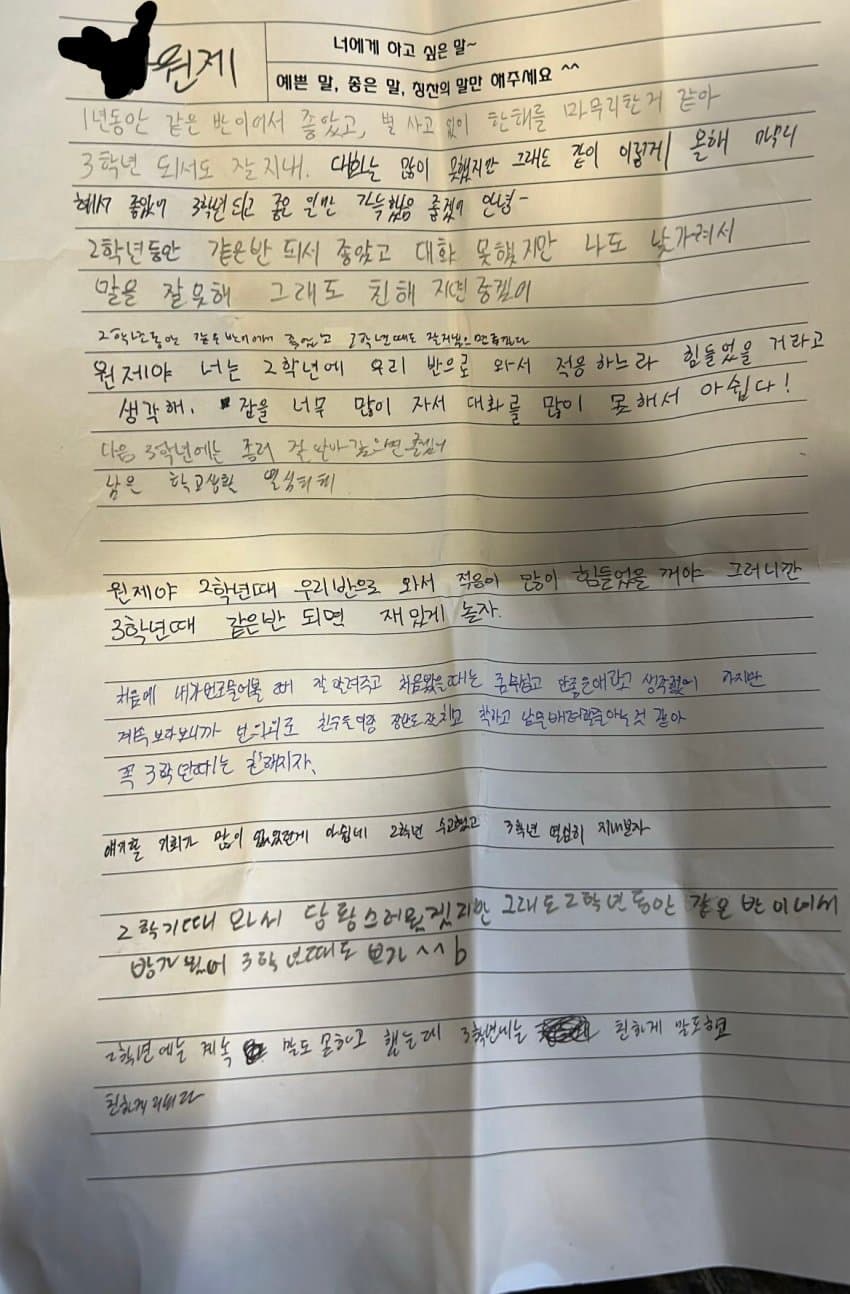 원제
너에게 하고 싶은 말~
예쁜 말, 좋은 말, 칭찬의 말만 해주세요 ^^
1년동안 같은 반이어서 좋았고, 별 사고 없이 한해를 마무리한거 같아
3학년 되서도 잘 지내. 대화는 많이 못했지만 그래도 같이 이렇게 올해 마무리
해서 좋았어 3학년되고 좋은 일만 가득했음 좋겠어 안녕~
2학년동안 같은반 되서 좋았고 대화 못했지만 나도 낯가려서
말을 잘못해 그래도 친해 지면 좋겠어
2학년동안 같은 반이어서 좋았고 3학년때도 잘지냈으면
원제야 너는 2학년에 우리 반으로 와서 적응하느라 힘들었을 거라고
생각해. 잠을 너무 많이 자서 대화를 많이 못해서 아쉽다!
다음 3학년에는
남은 학교생활 열심히해
원제야 2학년때 우리반으로 와서 적응이 많이 힘들었을 꺼야 그러니깐
3학년때 같은반 되면 재밌게 놀자.
처음에 내가 먼저 물어볼 때 잘 알려주고 처음봤을때는 좀 무섭고 안좋은애라고 생각했어 하지만
계속 보다보니까 친구들이랑 장난도 잘 치고 착하고 남을 배려할줄아는 것 같아
꼭 3학년때는 친해지자.
얘기할 기회가 많이 없었던게 아쉽네 2학년 수고했고 3학년 열심히 지내보자
2학기때 와서 당황스러웠겠지만 그래도 2학년동안 같은 반이여서
반가웠어 3학년때도 보자 ^^b
2학년에는 계속 말도 못하고 했는데 3학년에는 친하게 말도하고
친하게 지내자